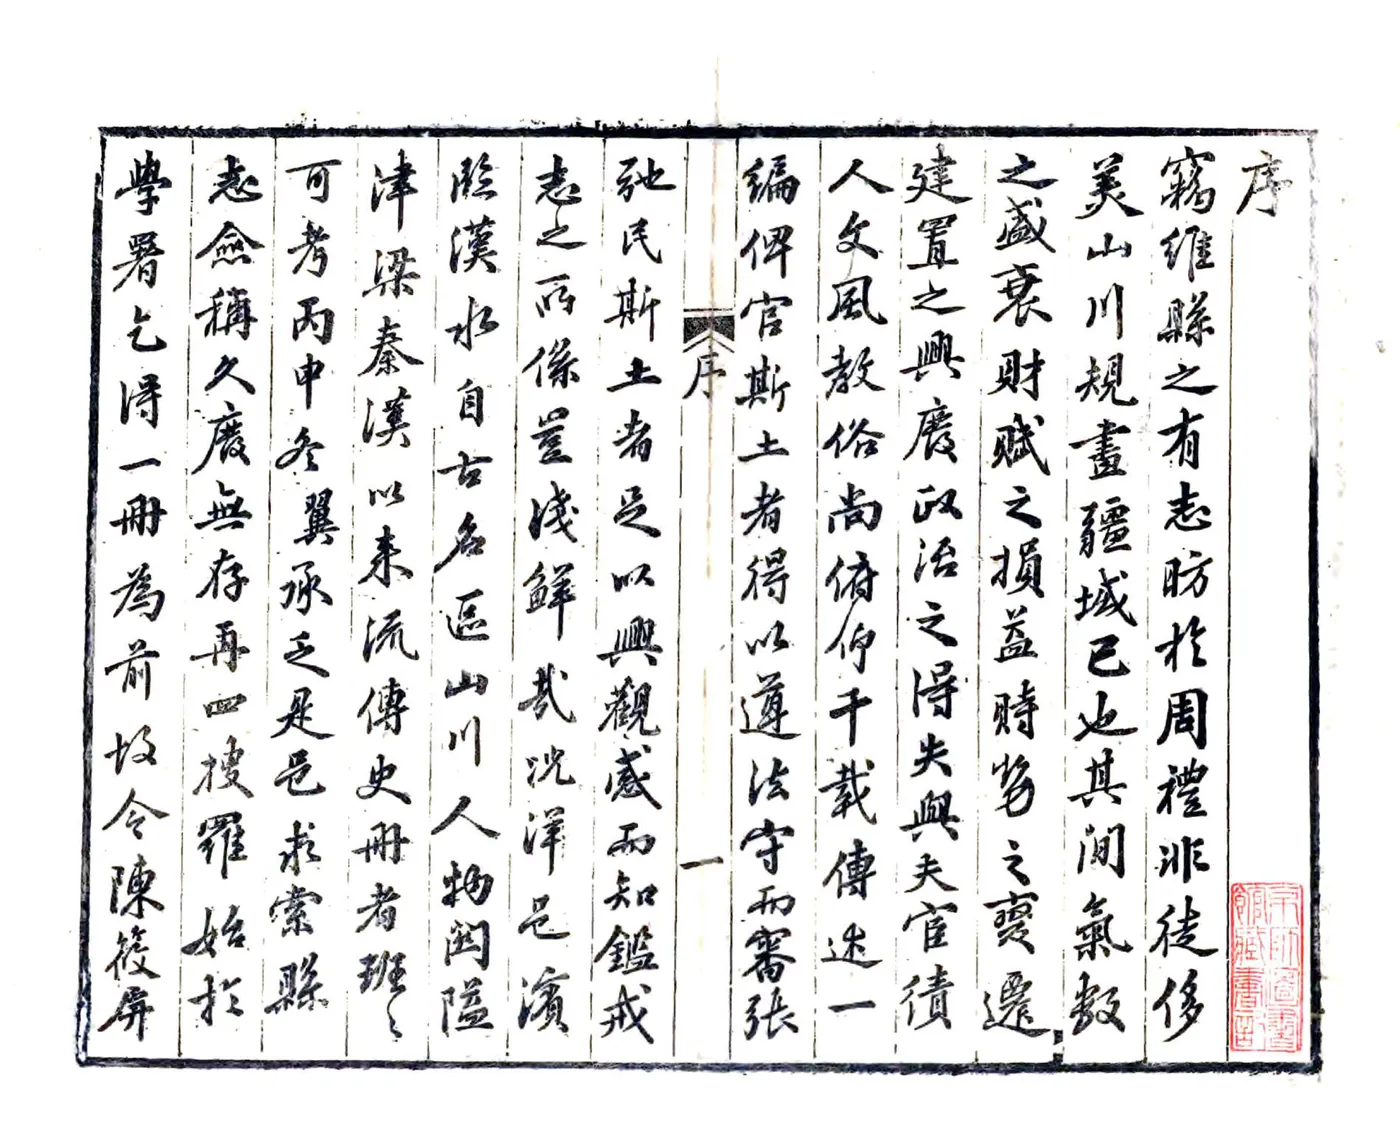 序
竊維縣之有志昉於周禮非徒侈
美山川規畫疆域已也其間氣數
之盛衰財賦之損益時勢之變遷
建置之興廢政治之得失與夫宦績
人文風教俗尚俯仰千載傳述一
編俾官斯土者得以遵法守而審張
序
一
弛民斯土者足以興觀感而知鑑戒
志之所係豈淺鮮哉況洋邑濱
臨漢水自古名區山川人物関隘
津梁秦漢以来流傳史册者班〻
可考丙申冬翼承乏是邑求索縣
志僉稱久廢無存再四搜羅始於
學署乞得一冊為前故令陳筱屏